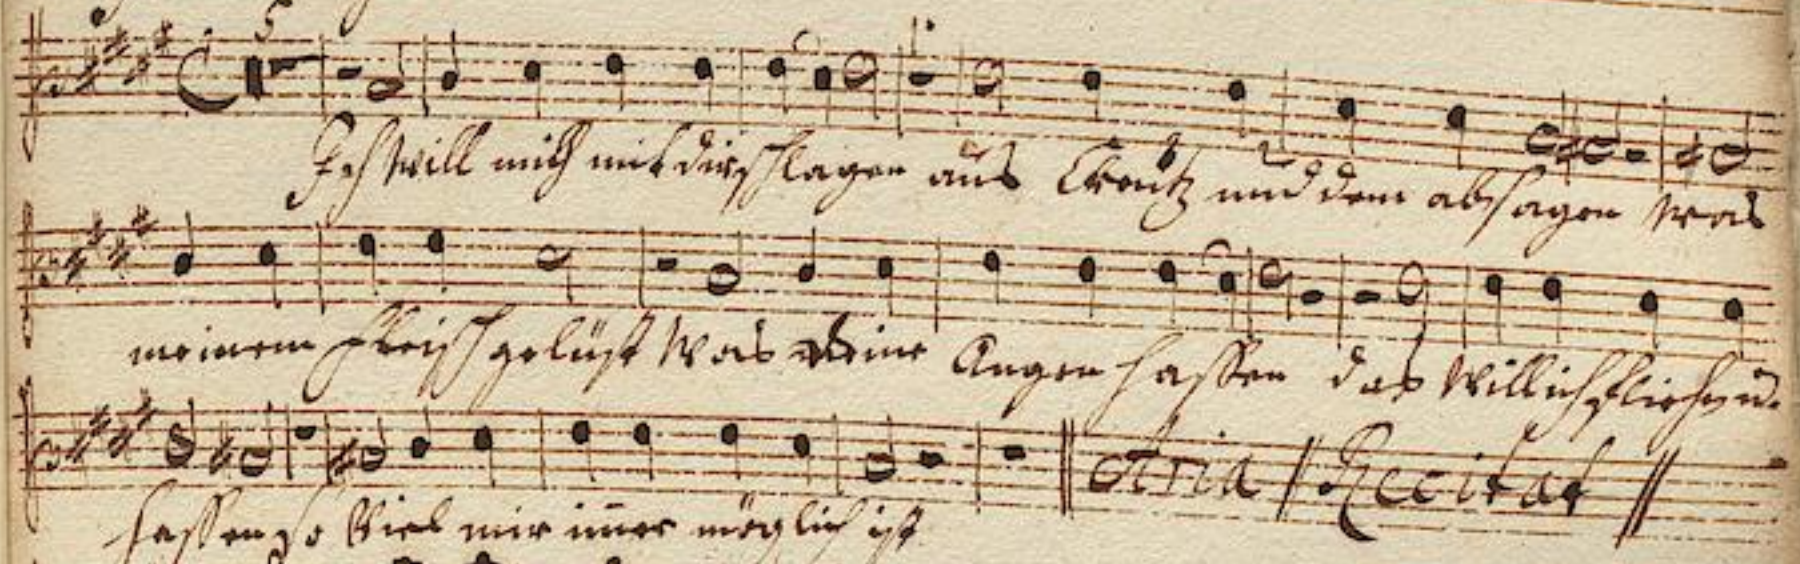 5
Ich will mich mit dir schlagen ans Creutz und dem absagen was
meinem Fleisch gelüst Was deine Augen hassen das will ich fliehen u.
hassen so viel mir im̄er möglich ist
Aria Recitat